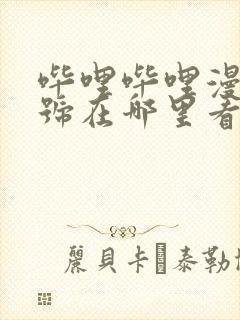 哔哩哔哩漫
號在哪里看
麗貝卡·泰勒